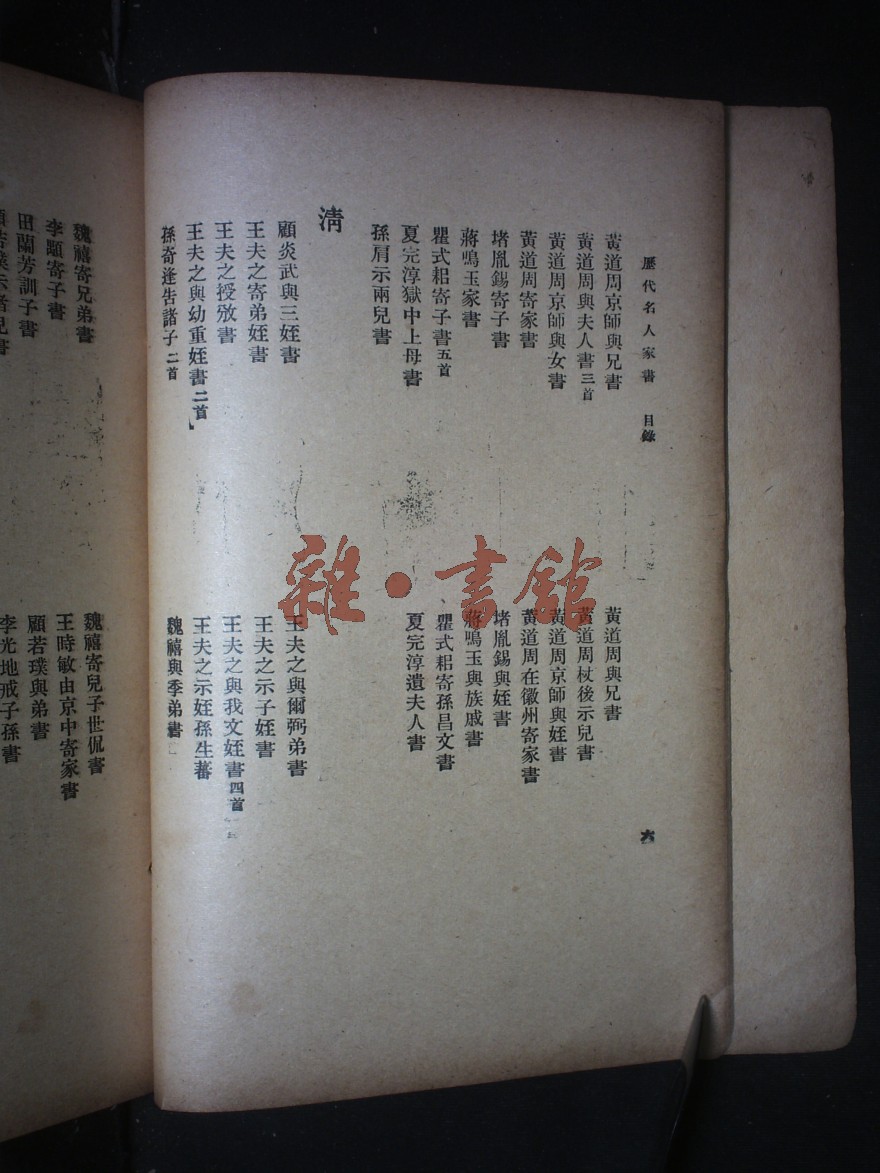 歷代名人家書 目錄
六
黃道周京師與兄書
黃道周與兄書
黃道周與夫人書三首
黃道周杖後示兒書
黃道周京師與女書
黃道周京師與姪書
黃道周寄家書
黃道周在徽州寄家書
堵胤錫寄子書
堵胤錫與姪書
蔣鳴玉家書
蔣鳴玉與族戚書
瞿式耜寄子書五首
瞿式耜寄孫昌文書
夏完淳獄中上母書
夏完淳遺夫人書
孫肩示兩兒書
清
顧炎武與三姪書
王夫之與爾弼弟書
王夫之寄弟姪書
王夫之示子姪書
王夫之授攽書
王夫之與我文姪書四首
王夫之與幼重姪書二首
王夫之示姪孫生蕃
孫奇逢告諸子二首
魏禧與季弟書
魏禧寄兄弟書
魏禧寄兒子世侃書
李顒寄子書
王時敏由京中寄家書
田蘭芳訓子書
顧若璞與弟書
顧若璞示諸兒書
李光地戒子孫書
雜·書館